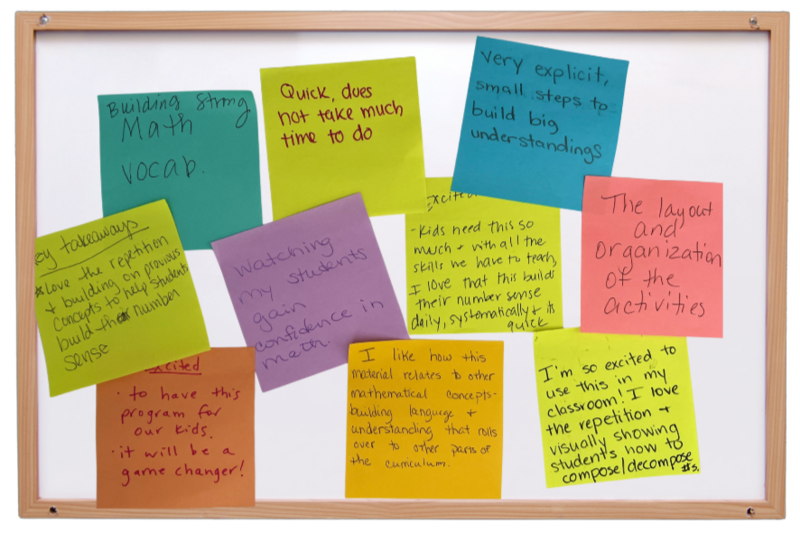 Building Strong
Math
vocab.
Quick, does
not take much
time to do
very explicit,
small steps to
build big
understandings
ey takeaways
*Love the repetition
+ building on previous
concepts to help students
build number
sense
watching
my students
gain
confidence in
math.
Excited
-Kids need this so
much + with all the
skills we have to teach,
I love that this builds
their number sense
daily, systematically + is
quick
The layout
and
organization
of the
activities
xcited
· to have this
program for
our kids.
· it will be a
game changer!
I like how this
material relates to other
mathematical concepts-
building language +
understanding that rolls
over to other parts of
the curriculum.
I'm so excited to
use this in my
classroom! I love
the repetition +
visually showing
student's how to
compose/decompose #s.